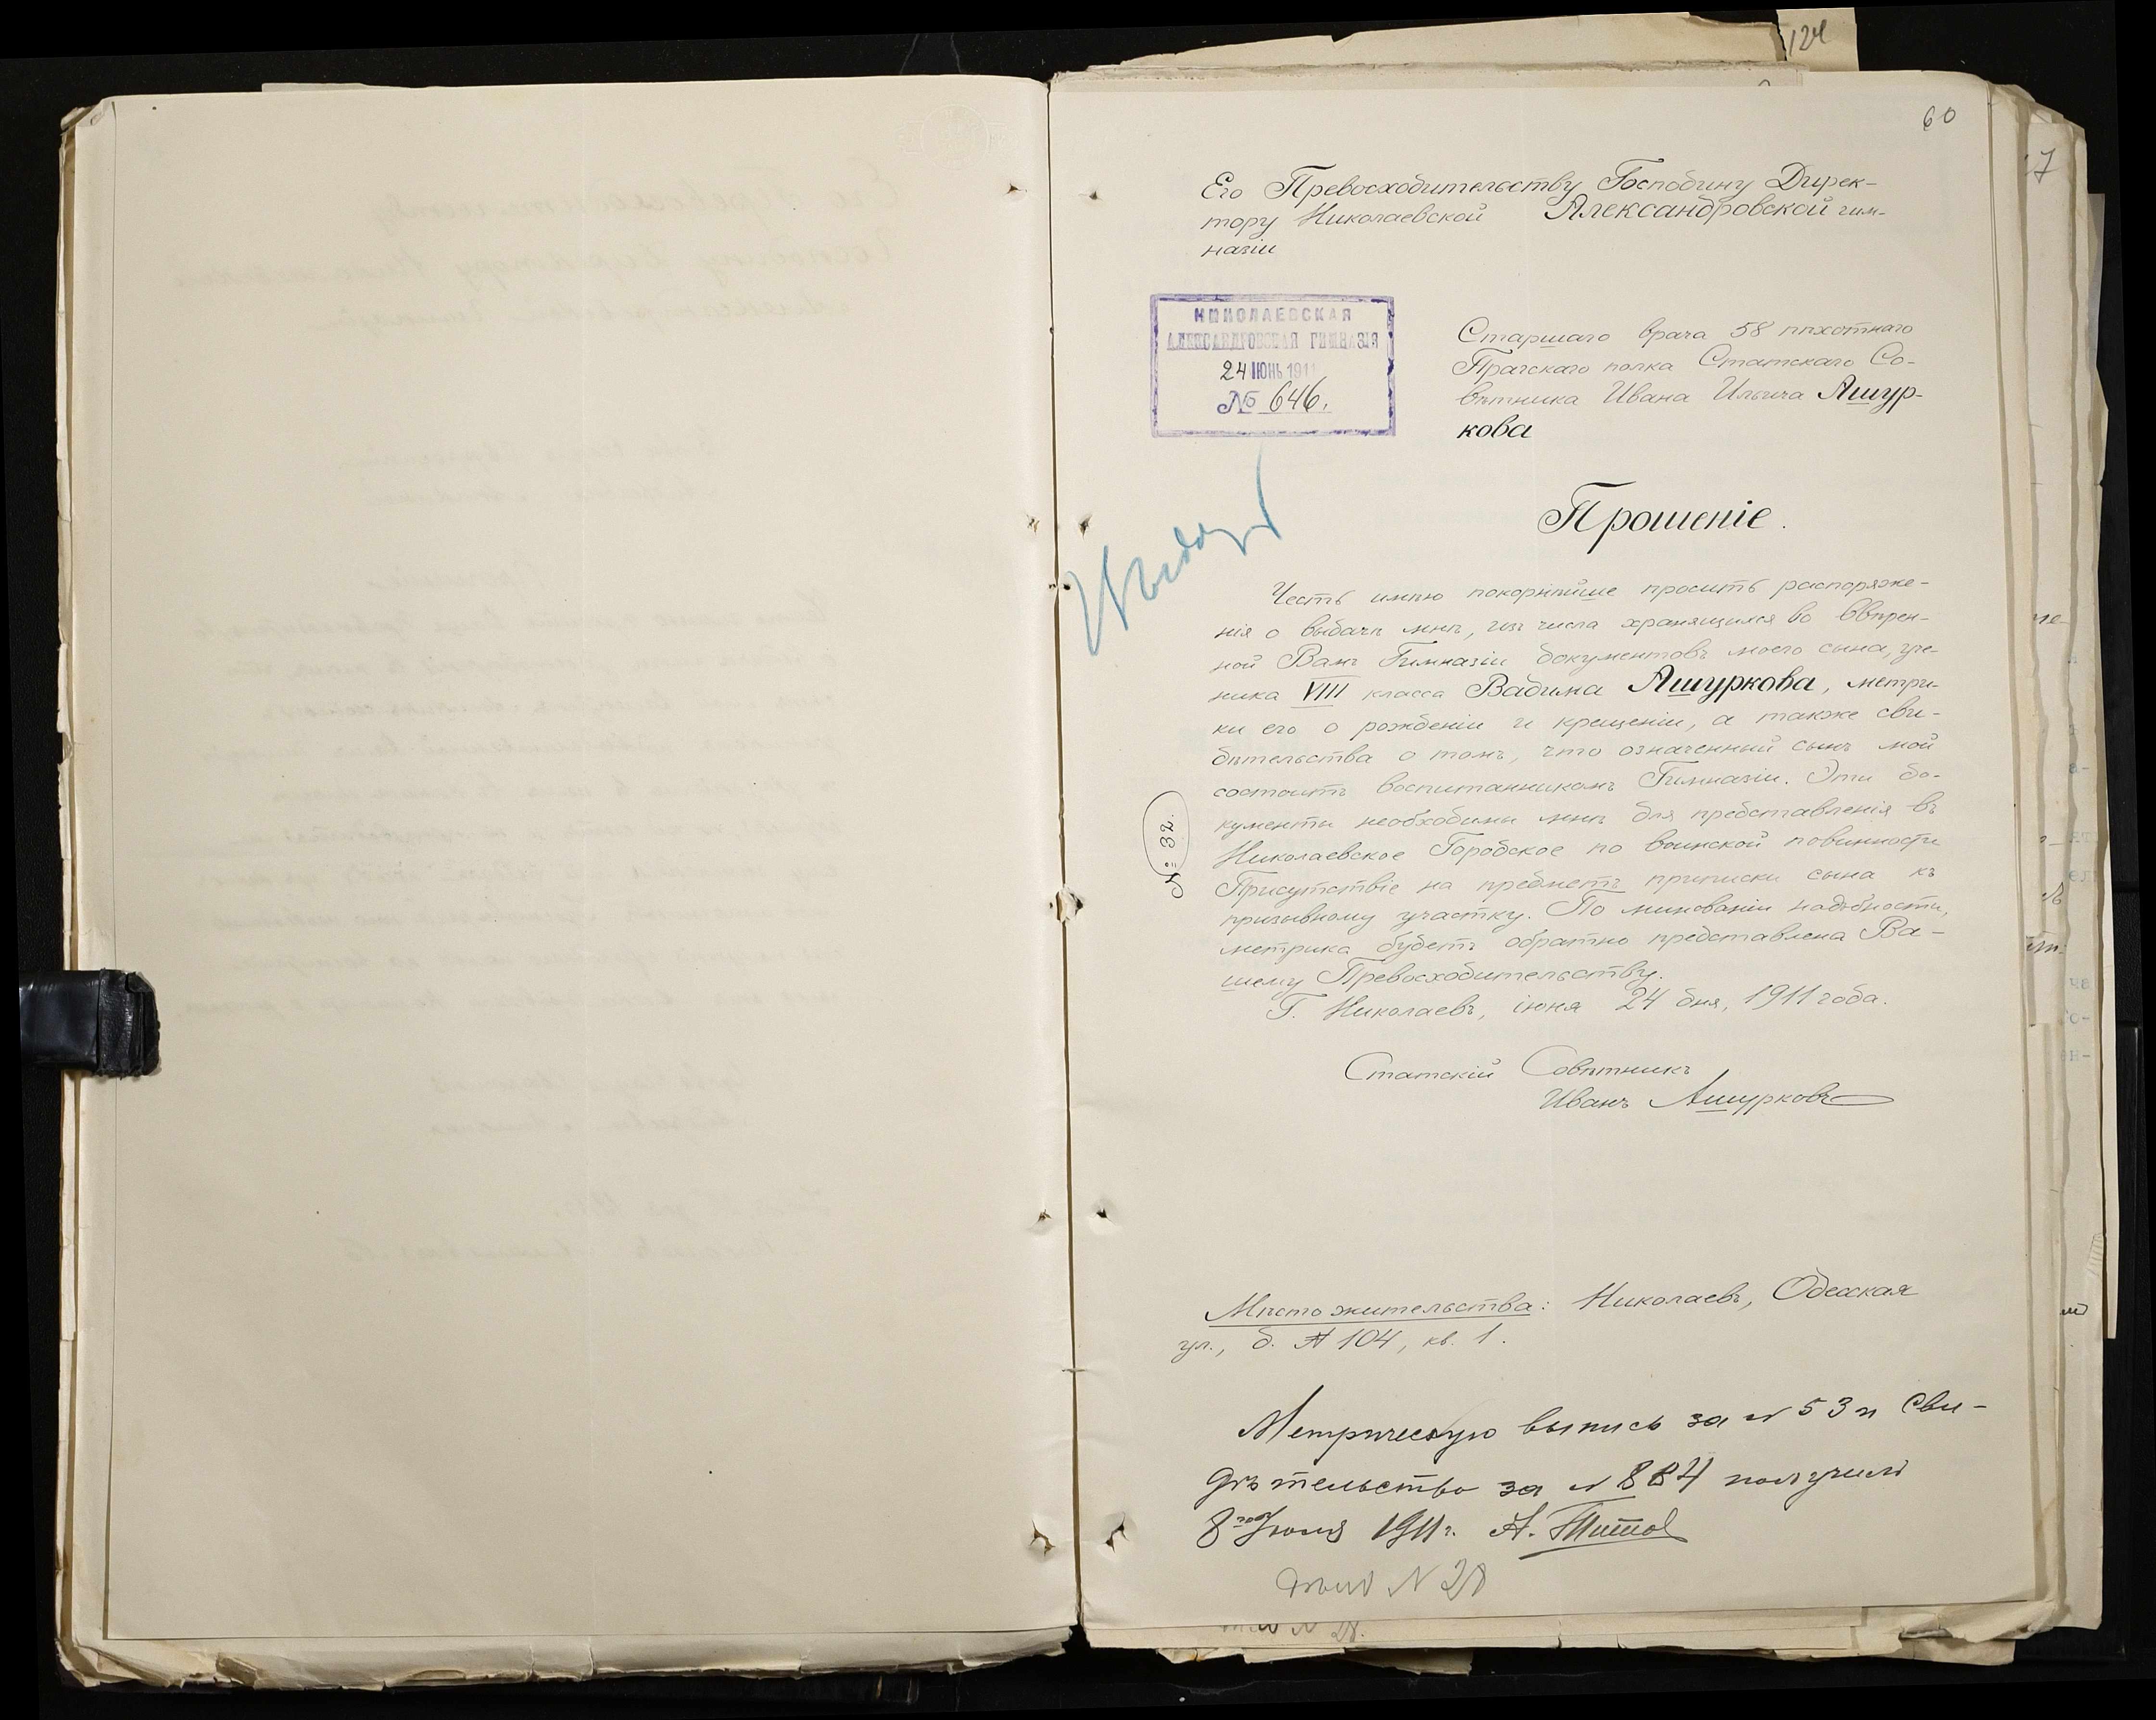 124
60
7
Его Превосходительству Господину Дирек-
тору Николаевской Александровской гим-
назіи
НИКОЛАЕВСКАЯ
АЛЕКСАНДРОВСКАЯ ГИМНАЗІЯ
24 ІЮНЬ 1911
№ 646.
Старшаго врача 58 пѣхотнаго
Прагскаго полка Статскаго Со-
вѣтника Ивана Ильича Ашур-
кова
Прошеніе.
Честь имѣю покорнѣйше просить распоряже-
нія о выдачѣ мнѣ, изъ числа хранящихся во ввѣрен-
ной Вамъ Гимназіи документовъ моего сына, уче-
ника VIII класса Вадима Ашуркова, метри-
ки его о рожденіи и крещеніи, а также сви-
дѣтельства о томъ, что означенный сынъ мой
состоитъ воспитанникомъ Гимназіи. Эти до-
кументы необходимы мнѣ для представленія въ
Николаевское Городское по воинской повинности
Присутствіе на предметъ приписки сына къ
призывному участку. По минованіи надобности,
метрика будетъ обратно представлена Ва-
шему Превосходительству.
Г. Николаевъ, іюня 24 дня, 1911 года.
№ 32.
Статскій Совѣтникъ
Иванъ Ашурковъ
Мѣсто жительства: Николаевъ, Одесская
ул., д. № 104, кв. 1.
Метрическую выпись за № 53 и Сви-
дѣтельство за № 884 получилъ
8го Іюля 1911 г. А. Титов
дѣло № 28
№ 28.